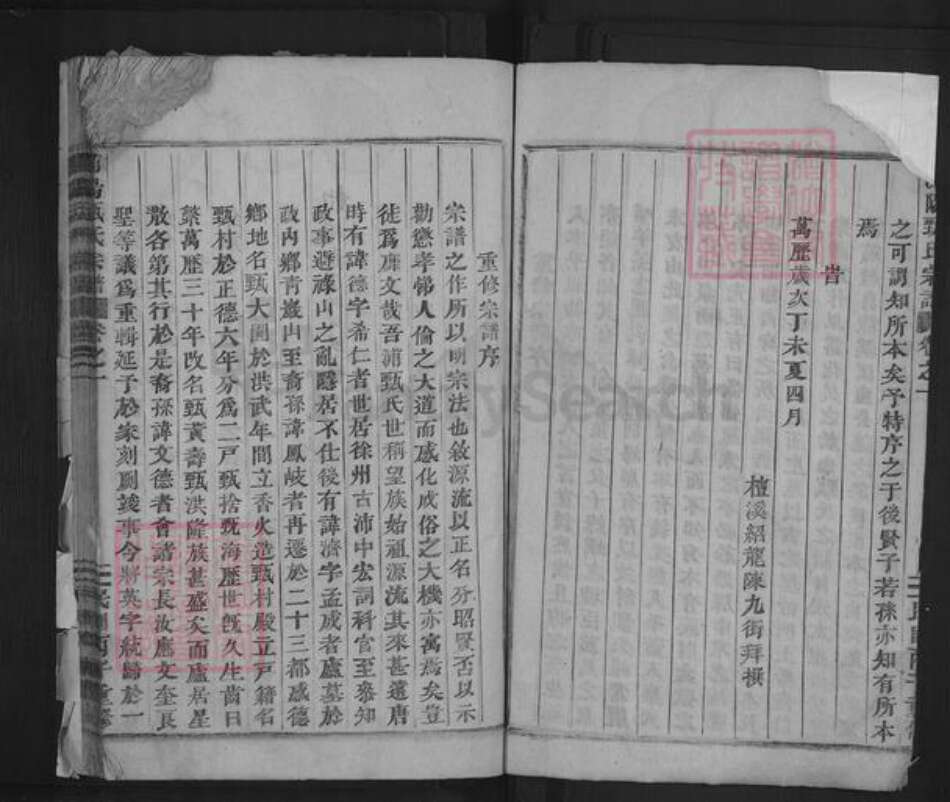 之可溯知所本矣予特序之于後賢子若孫亦知有所本
焉
旹
萬歷歲次丁未夏四月
檀溪紹龍陳九街拜撰
重修宗譜序
宗譜之作所以明宗法也敘源流以正名分昭賢否以示
勸懲孝悌人倫之大道而感化成俗之大機亦寓焉矣豈
徒為虛文哉吾浦甄氏世稱望族始祖源流其來甚遠唐
時有諱德字希仁者世居徐州古沛中宏詞科官至參知
政事避祿山之亂隱居不仕後有諱濟字孟成者廬墓於
政內鄉青巖山至裔孫諱鳳岐者再遷於二十三都感德
鄉地名甄大園於洪武年間立香火造甄村殿立戶籍名
甄村於正德六年分為二戶甄捨甄海歷世既久生齒日
繁萬歷三十年改名甄黃壽甄洪隆族甚盛矣而廬居星
散各第其行於是裔孫諱文德者會諸宗長汝應文奎良
聖等議為重輯延予於家刻剧竣事今將英字統歸於一
甄氏宗譜
卷之一